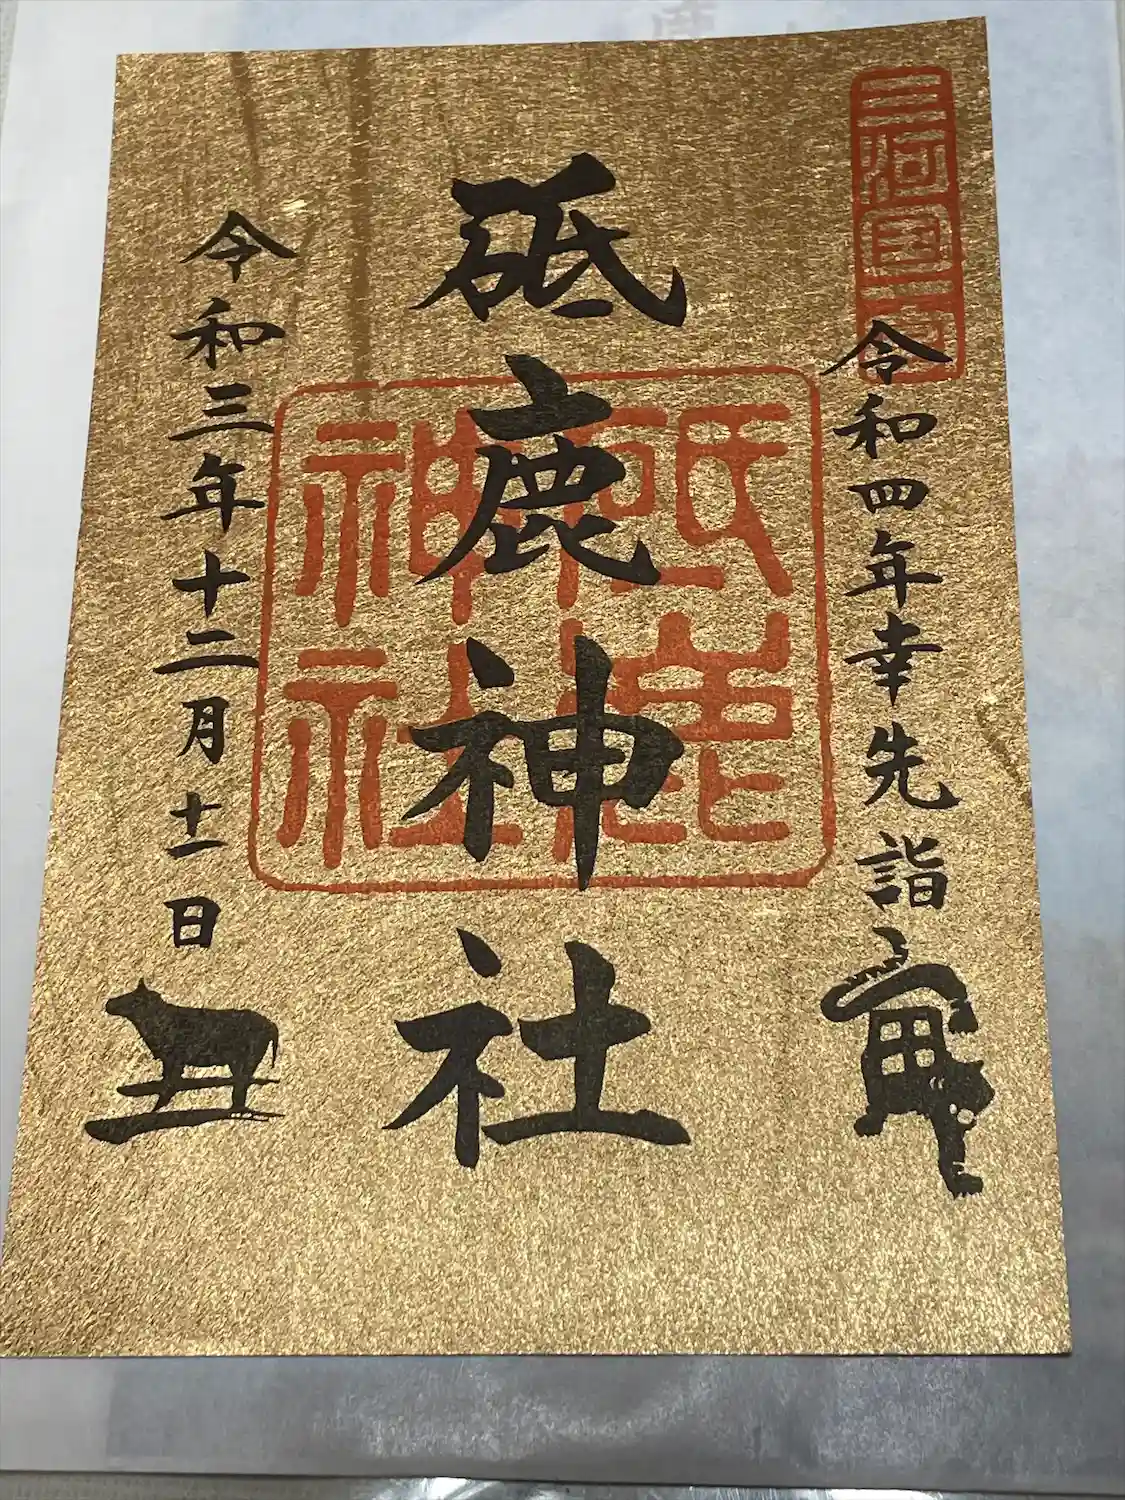 三河国一宮
令和四年幸先詣
寅
砥鹿神社
砥鹿
神社
令和三年十二月十一日
丑